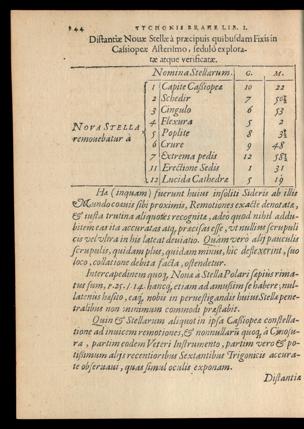 344 TYCHONIS BRAHE LIB. I.
Distantiæ Nouæ Stellæ à præcipuis quibusdam Fixis in
Cassiopeæ Asterismo, sedulò explora-
tæ atque verificatæ.
Nomina Stellarum. G. M.
1 Capite Cassiopeæ 10 22
2 Schedir 7 50½
3 Cingulo 6 53
4 Flexura 5 2
NOVA STELLA 5 Poplite 8 3½
remouebatur à 6 Crure 9 48
7 Extrema pedis 12 58½
11 Erectione Sedis 1 31
12 Lucida Cathedræ 5 19
Hæ (inquam) fuerunt huius insoliti Sideris ab illis
Mundo coæuis sibi proximis, Remotiones exactè denotatæ,
& iusta trutina aliquoties recognitæ, adeò quod nihil addu-
bitem eas ita accuratas atq; præcisas esse, ut nullius scrupuli
cis vel ultra in his lateat deuiatio. Quam verò alij pauculis
scrupulis, quidam plus, quidam minus, hic deflexerint, suo
loco, collatione debita facta, ostendetur.
Intercapedinem quoq; Nouæ à Stella Polari sæpius rima-
tus sum, P. 25. / 14. hancq; etiam ad amussim se habere, nul-
latenus hæsito, eaq; nobis in peruestigandis huius Stellæ pene-
tralibus non minimum commodi præstabit.
Quin & Stellarum aliquot in ipsa Cassiopeæ constella-
tione ad inuicem remotiones, & nonnullarū quoq; à Cynosu-
ra, partim eodem Veteri Instrumento, partim verò & po-
tissimùm alijs recentioribus Sextantibus Trigonicis accura-
tè obseruaui, quas simul oculis exponam.
Distantiæ